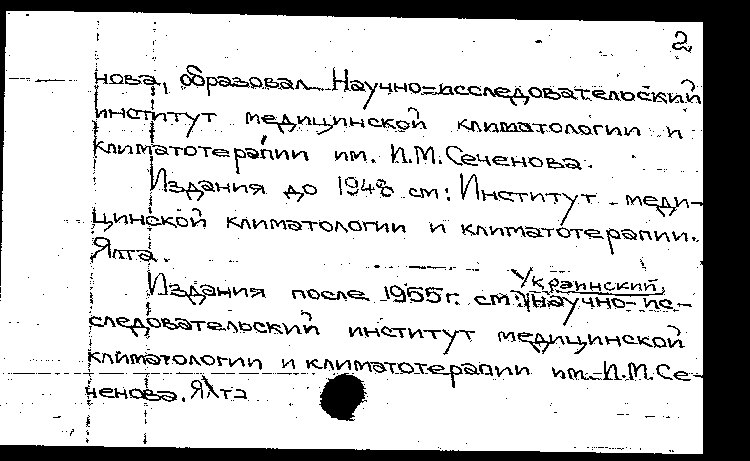 2
нова, образовал Научно=исследовательский
институт медицинской климатологии и
климатотерапии им. И.М.Сеченова.
Издания до 1948 см: Институт меди-
цинской климатологии и климатотерапии.
Ялта.
Украинский
Издания после 1955г. см: научно-ис-
следовательский институт медицинской
климатологии и климатотерапии им. И.М.Се-
ченова. Ялта